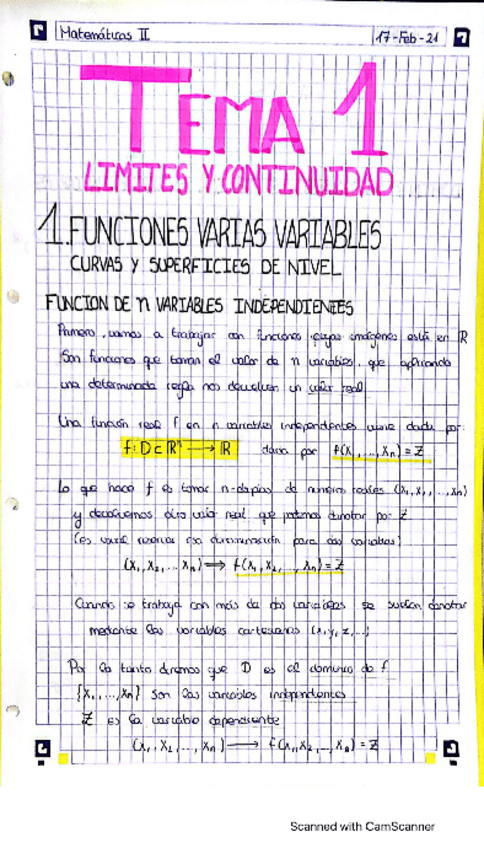 Matemáticas II
17-Feb-21
TEMA 1
LIMITES Y CONTINUIDAD
1. FUNCIONES VARIAS VARIABLES
CURVAS Y SUPERFICIES DE NIVEL
FUNCION DE n VARIABLES INDEPENDIENTES
Primero, vamos a trabajar con funciones cuyas imágenes está en ℝ
Son funciones que toman el valor de n variables, que aplicando
una determinada regla nos devuelven un valor real
Una función real f en n variables independientes viene dada por:
f: D ⊂ ℝⁿ ⟶ ℝ dada por f(x₁, ..., xₙ) = Z
Lo que hace f es tomar n-duplas de números reales (x₁, x₂, ..., xₙ)
y devolvernos otro valor real que podemos denotar por Z
(es usual reservar esa denominación para dos variables)
(x₁, x₂, ... xₙ) ⟹ f(x₁, x₂, ..., xₙ) = Z
Cuando se trabaja con más de dos variables se suelen denotar
mediante las variables cartesianas (x, y, z, ...)
Por lo tanto diremos que D es el dominio de f
{x₁, ..., xₙ} son las variables independientes
Z es la variable dependiente
(x₁, x₂, ..., xₙ) ⟶ f(x₁, x₂, ..., xₙ) = Z
Scanned with CamScanner